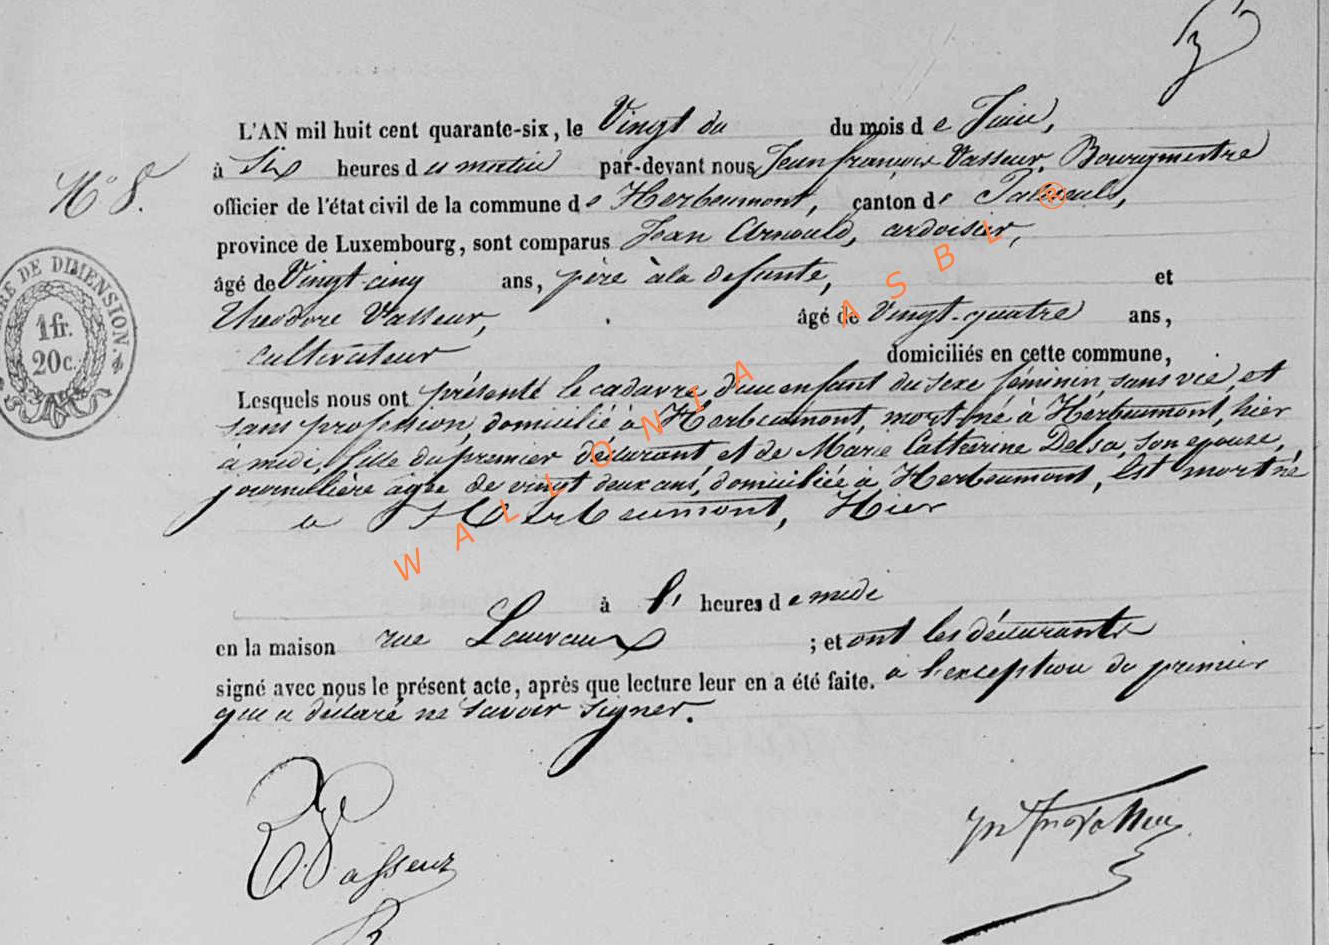 L'AN mil huit cent quarante-six, le Vingt du du mois de Juin,
à Six heures du matin par-devant nous Jean françois Vasseur, Bourgmestre
N° 8.
officier de l'état civil de la commune de Herbeumont, canton de Paliseuls,
province de Luxembourg, sont comparus Jean Arnould, ardoisier,
âgé de Vingt-cinq ans, père à la défunte, et
Théodore Vasseur, âgé de Vingt-quatre ans,
cultivateur domiciliés en cette commune,
Lesquels nous ont présenté le cadavre d'un enfant du sexe féminin sans vie, et
sans profession, domicilié à Herbeumont, mort né à Herbeumont, hier
à midi, fille du premier déclarant et de Marie Catherine Delsa, son epouse,
journalière agée de vingt deux ans, domiciliée à Herbeumont, est mort né
a Herbeumont, Hier
à l' heures de midi
en la maison rue Lauvaux ; et ont les déclarants
signé avec nous le présent acte, après que lecture leur en a été faite. à l'exception du premier
qui a déclaré ne savoir signer.
TIMBRE DE DIMENSION
1 fr.
20 c.
WALLONIA ASBL ®
Vasseur